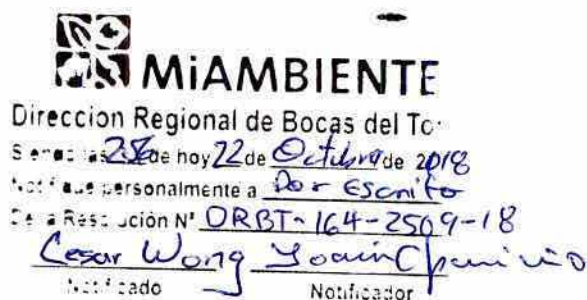 MiAMBIENTE
Direccion Regional de Bocas del To
Siendo las 2:56 de hoy 22 de Octubre de 2018
Notifique personalmente a Por Escrito
De la Resolución N° DRBT-164-2509-18
Cesar Wong Yoain
Notificado Notificador